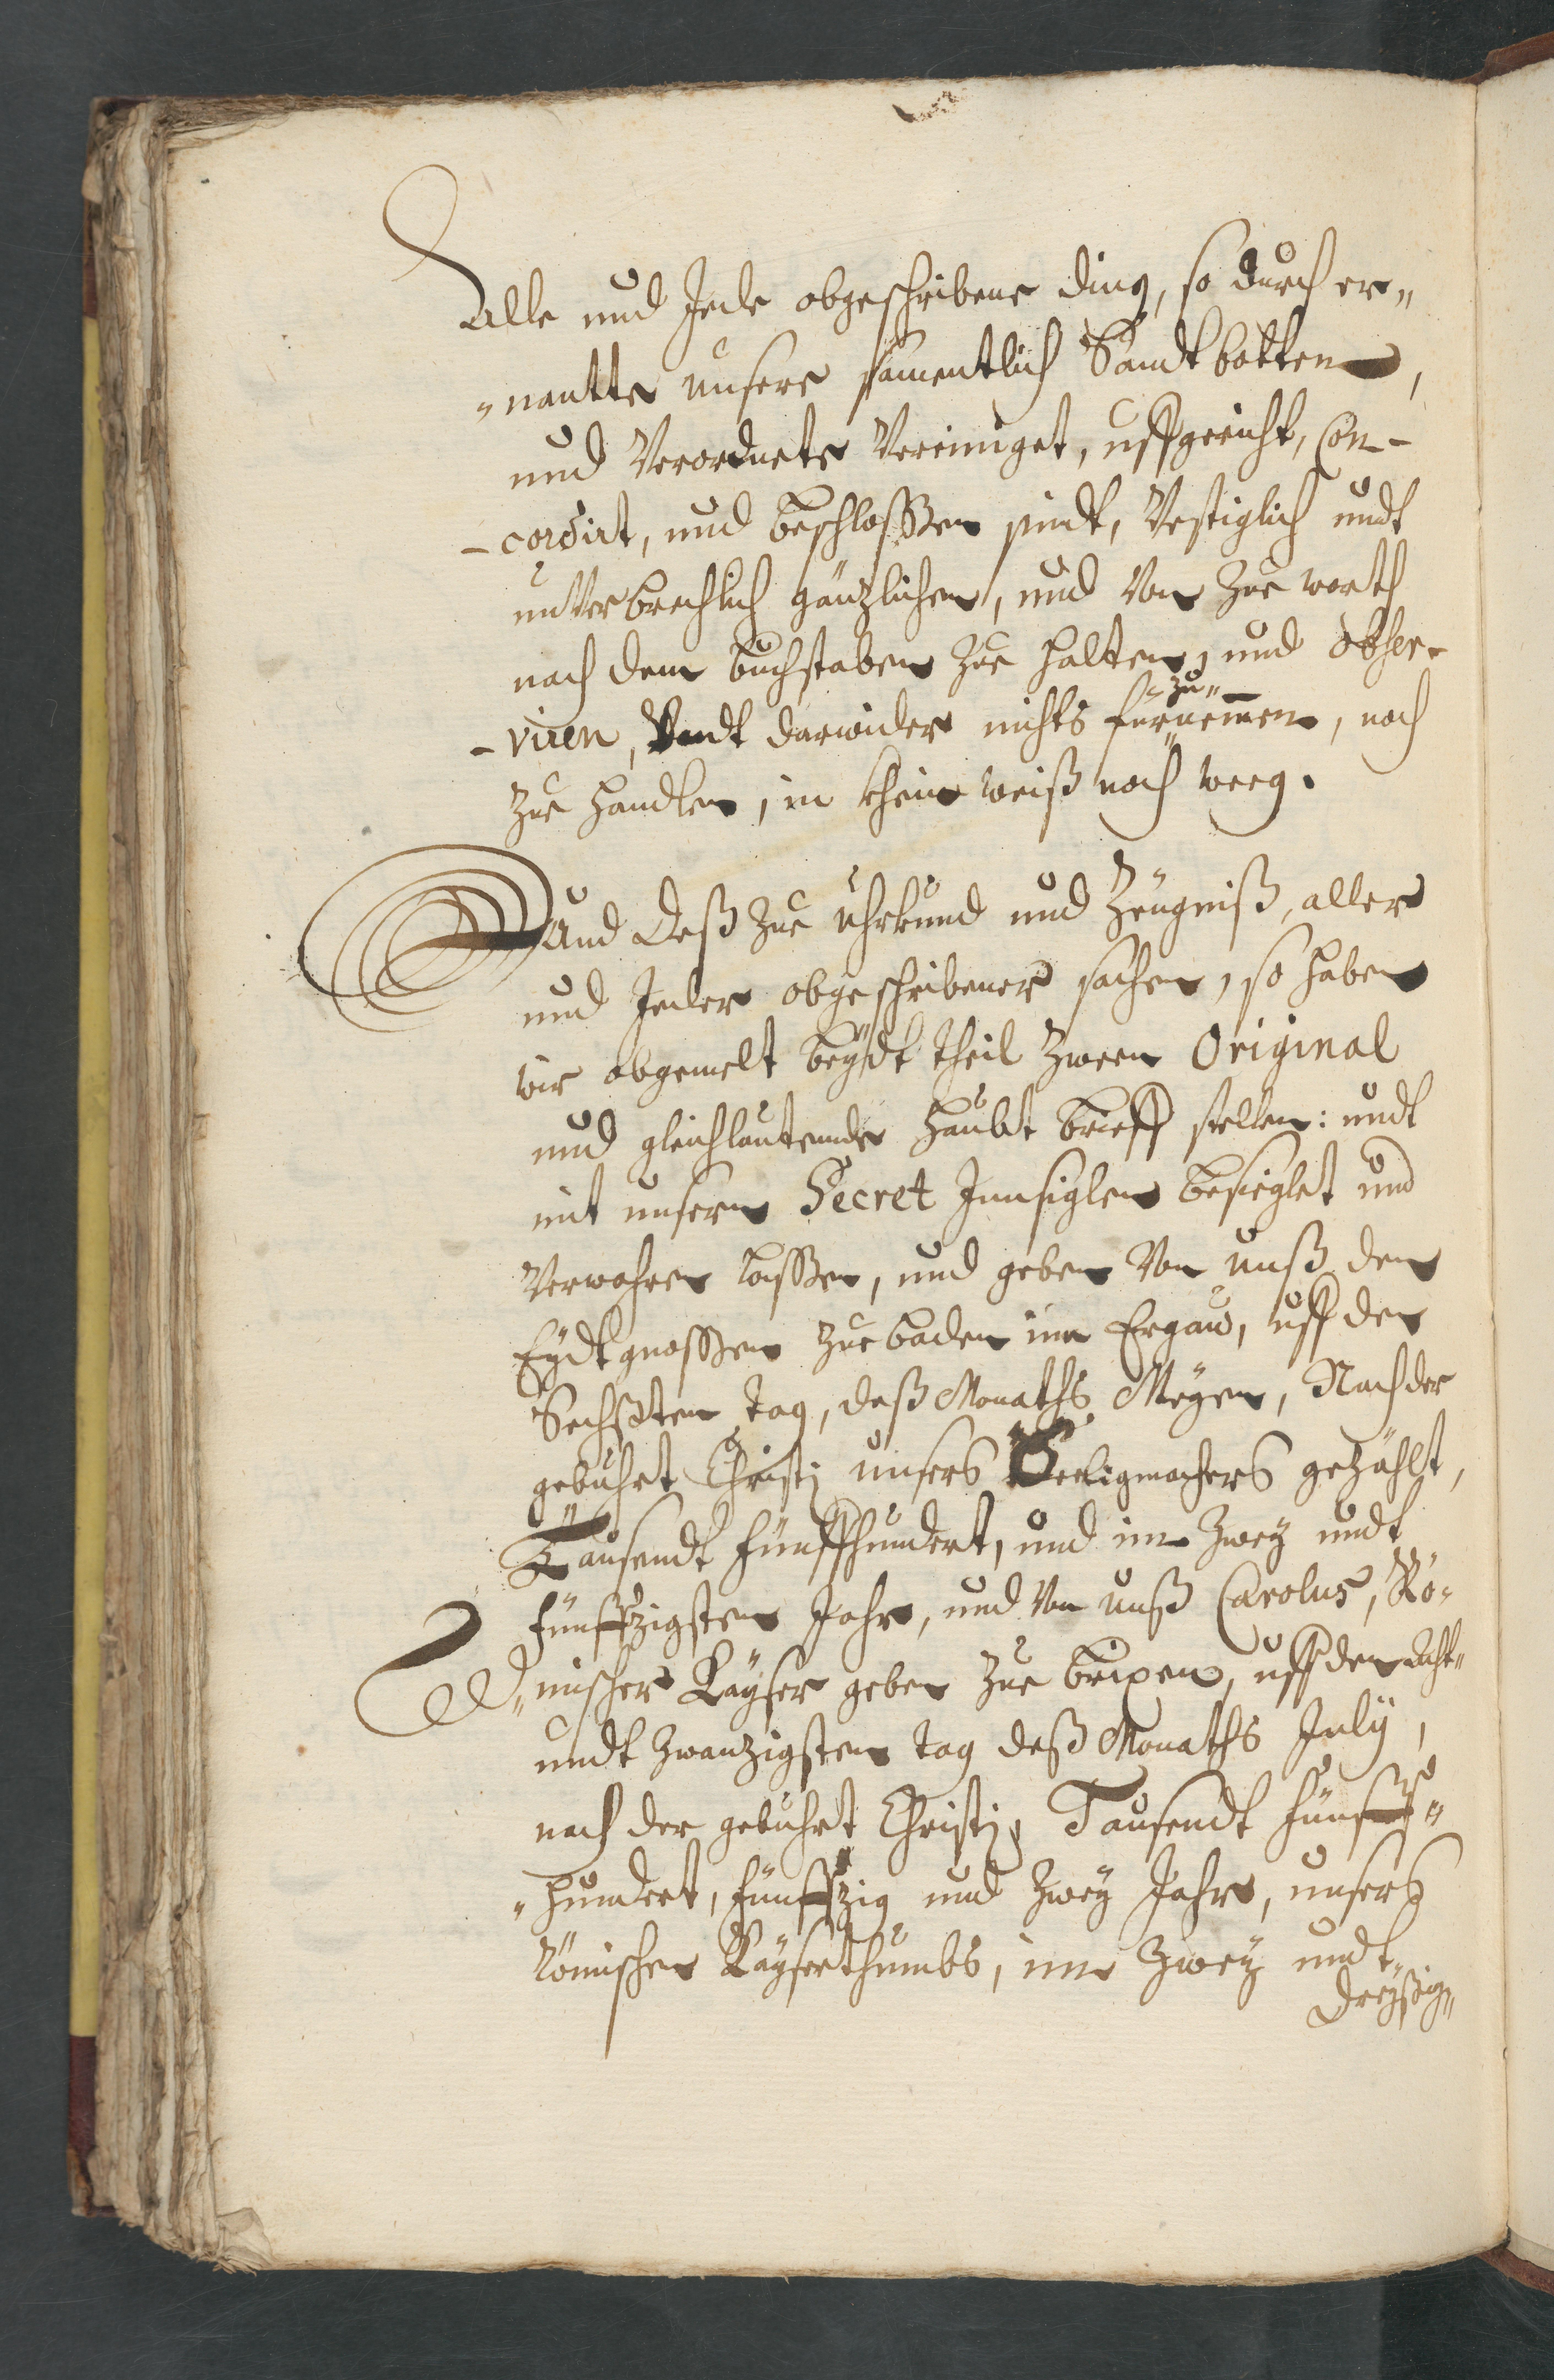 Alle und Jede obgeschribene ding, so durch er„
„nantte unsere samentlich Sandtbotten,
und Verordnete Vereiniget, uffgericht, Con-
-cordirt, und beschlossen sindt, Vestiglich undt
unVerbrechlich gäntzlichen, und Von Zue worth
nach dem buchstaben zue halten, und obser-
-viren, Vndt darwider nichts für„zu„nemmen, noch
zue handlen, in khein weiß noch weeg.
Und deß zue Uhrkund und Zeügniß, aller
und Jeder obgeschribener sachen, so haben
wir obgemelt beÿdt theil zween Original
und gleichlautende haubt brieff stellen: undt
mit unsern Secret Innsiglen besieglet und
Verwahren lassen, und geben Von unß den
Eÿdtgnossen zue baden im Ergaw, uff den
Sechßten tag, deß Monaths Meÿen, Nach der
gebuhrt Christj unsers Seeligmachers gezählt,
Tausendt fünffhundert, und im Zweÿ undt
fünffzigsten Jahr, und Von unß Carolus, Rö„
„mischer Kaÿser geben zue brixen, uff den Acht„
undt zwanzigsten tag deß Monaths Julÿ,
nach der gebuhrt Christj, Tausendt fünff„
„hundert, fünffzig und Zweÿ Jahr, unsers
Römischen Kaÿserthumbs, im Zweÿ undt„
dreÿßig„